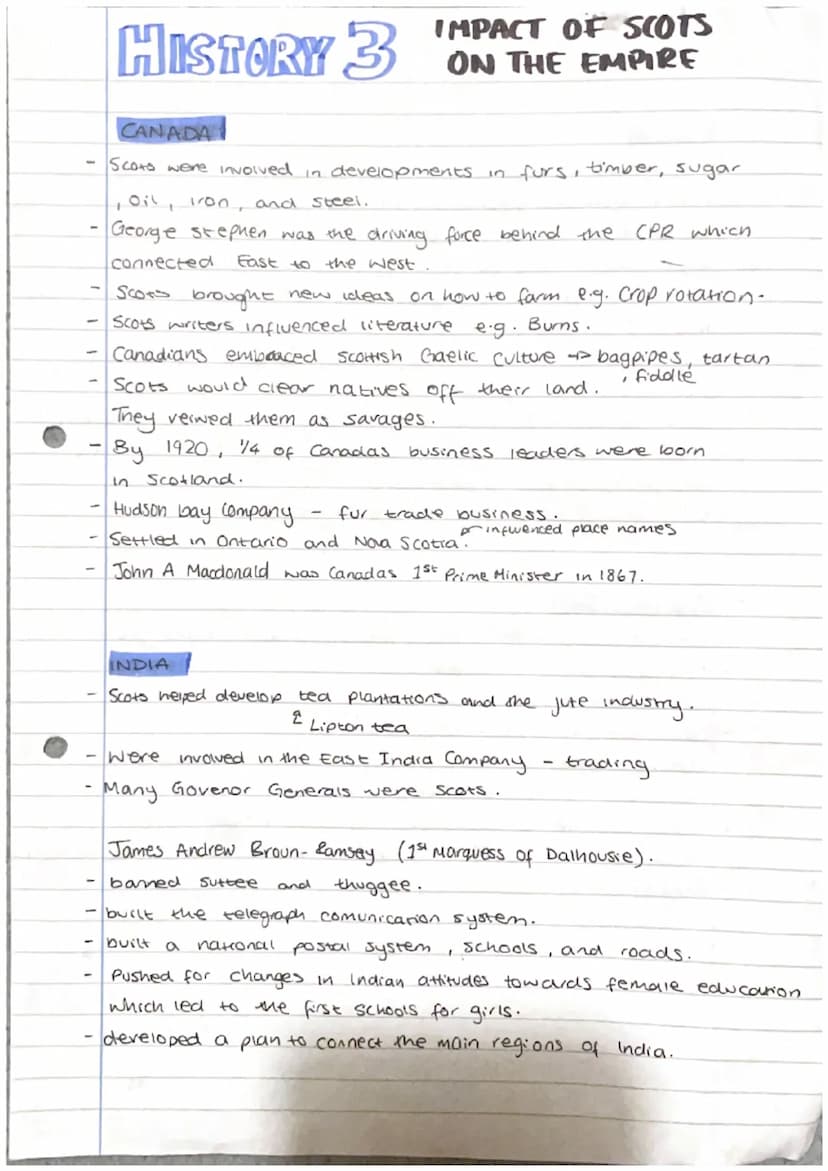 HISTORY 3 IMPACT OF SCOTS
ON THE EMPIRE
CANADA
- Scots were involved in developments in furs, timber, sugar
, oil, iron, and steel.
- George Stephen was the driving force behind the CPR which
connected East to the West.
- Scots brought new ideas on how to farm e.g. Crop rotation.
- Scots writers influenced literature e.g. Burns.
- Canadians embraced Scottish Gaelic Culture → bagpipes, tartan
, fiddle
- Scots would clear natives off their land.
They veiwed them as savages.
- By 1920, 1/4 of Canadas business leaders were born
in Scotland.
- Hudson bay Company - fur trade business.
influenced place names
- Settled in Ontario and Nova Scotia.
- John A Macdonald was Canadas 1st Prime Minister in 1867.
INDIA
- Scots helped develop tea plantations and the jute industry.
Lipton tea
- Were involved in the East India Company - trading
- Many Govenor Generals were Scots.
James Andrew Broun-Ramsay (1st Marquess of Dalhousie).
- banned suttee and thuggee.
- built the telegraph comunication system.
- built a national postal system, schools, and roads.
- Pushed for changes in Indian attitudes towards female education
which led to the first schools for girls.
- developed a plan to connect the main regions of India.